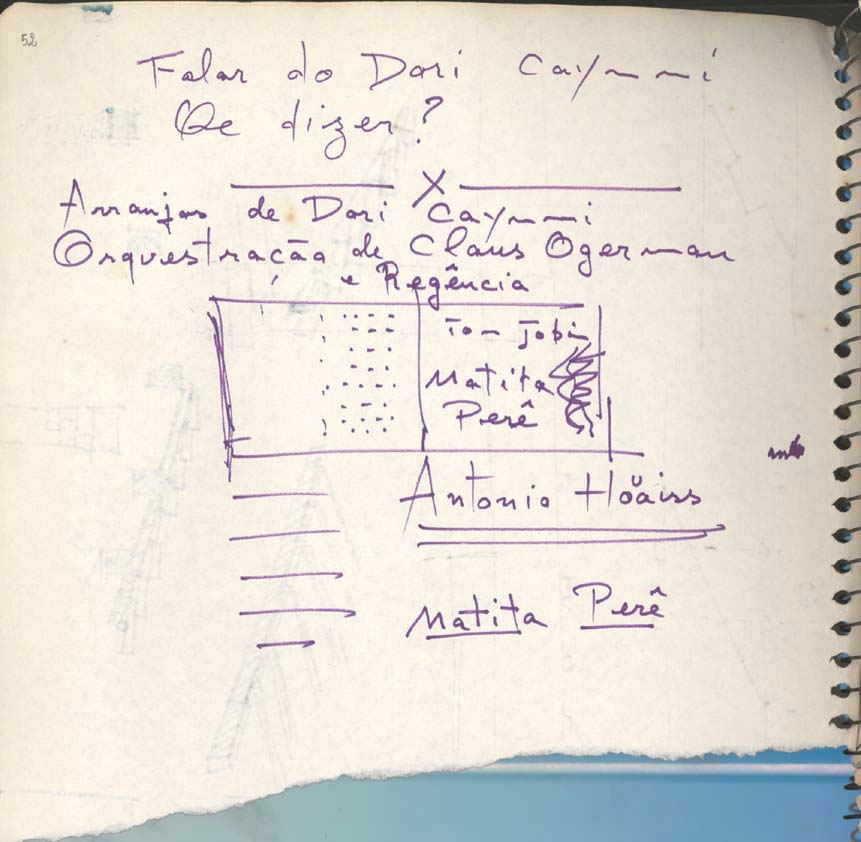 52
Falar do Dori Caymmi
Qe dizer?
X
Arranjos de Dori Caymmi
Orquestração de Claus Ogerman
e Regência
Tom Jobim
Matita
Perê
Antonio Hoüaiss
Matita Perê